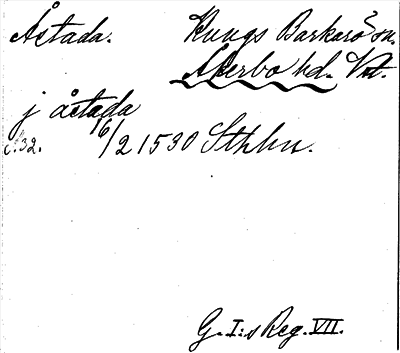 Åstada. Kungs Barkarö sn.
Åkerbo hd. Vm.
j åstada
s. 32. 16/2 1530 Sthlm.
G. I:s Reg. VII.